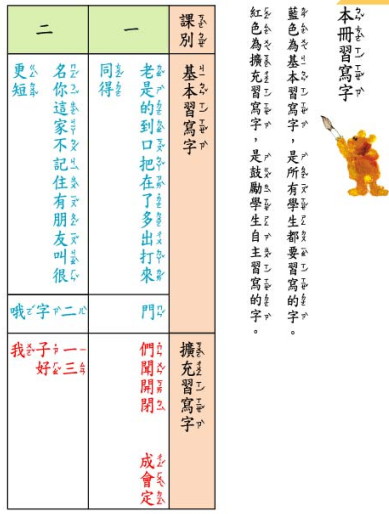 本冊習寫字
藍色為基本習寫字，是所有學生都要習寫的字。
紅色為擴充習寫字，是鼓勵學生自主習寫的字。
課別
基本習寫字
擴充習寫字
一
老是的到口把在了多出打來
同得
門
們聞開閉
成會定
二
名你這家不記住有朋友叫很
更短
二字哦
一三
子好
我